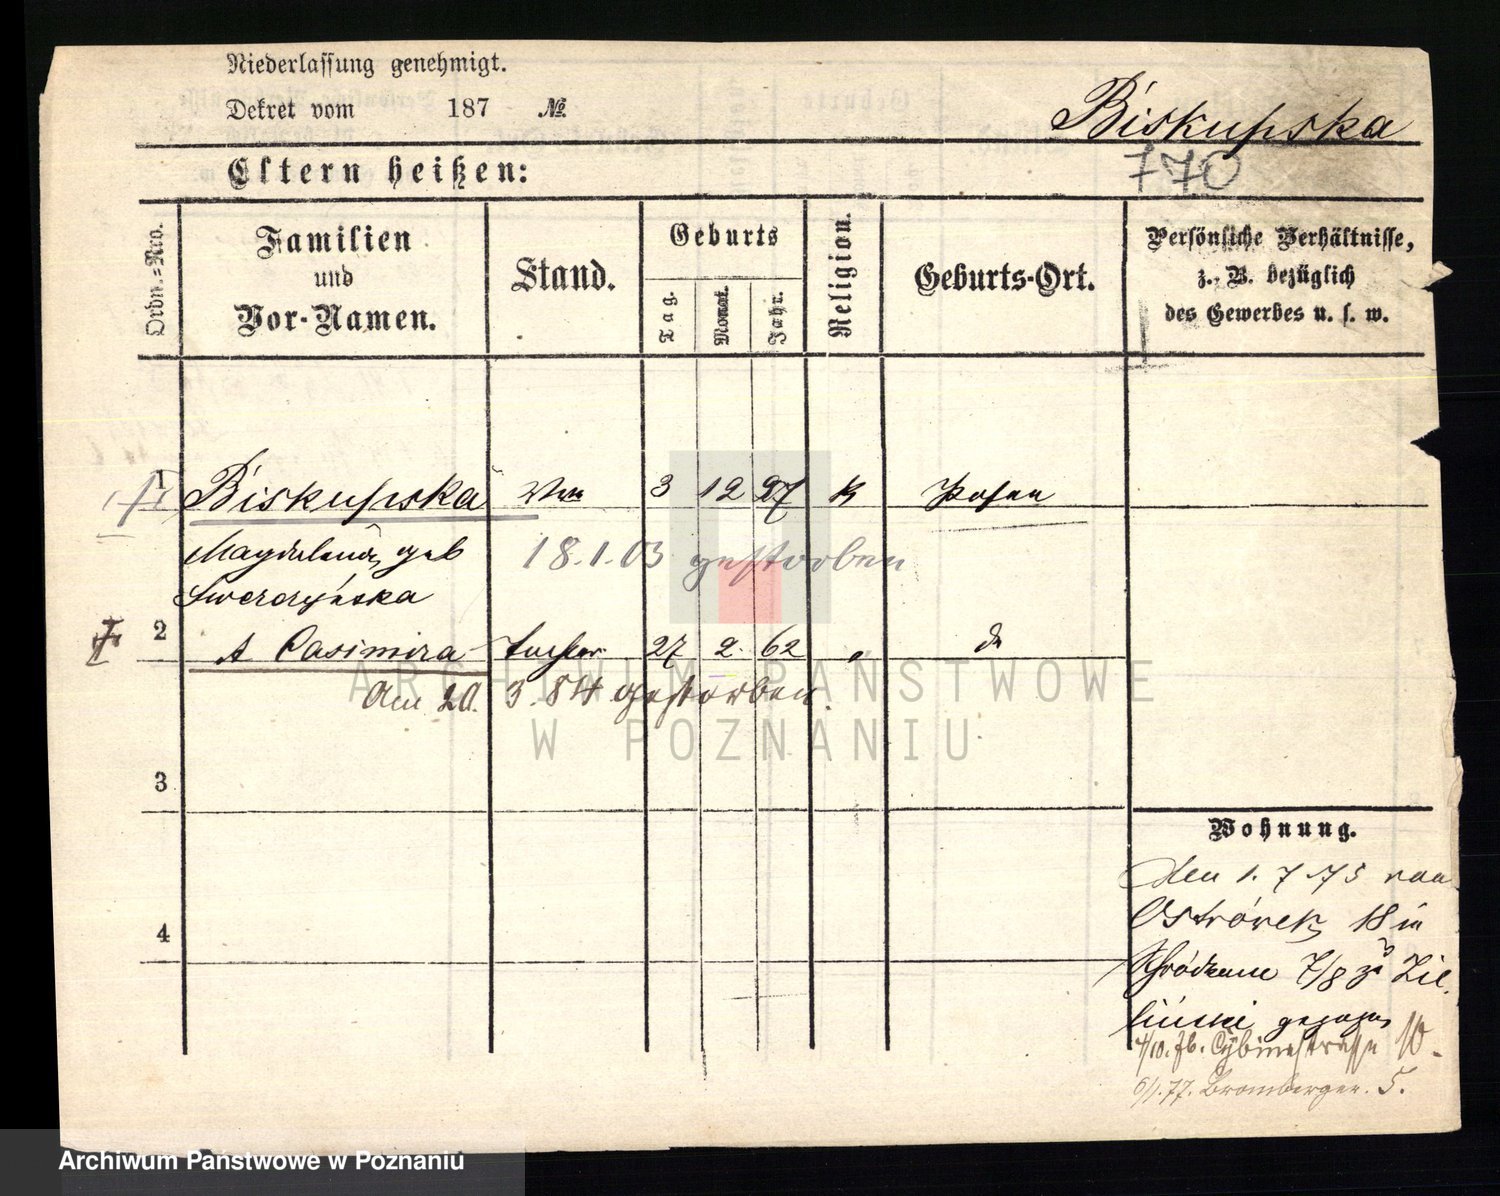 Niederlassung genehmigt.
Dekret vom 187 №
Biskupska
770
Eltern heißen:
Ordn.-Nro.
Familien
und
Vor-Namen.
Stand.
Geburts
Tag.
Monat.
Jahr.
Religion.
Geburts-Ort.
Persönliche Verhältnisse,
z. B. bezüglich
des Gewerbes u. s. w.
1 Biskupska Wwe 3 12 27 K Posen
Magdalena geb
18.1.03 gestorben
2 Casimira Tochter 27 2 62 " do
Am 20. 3. 84 gestorben.
3
4
Wohnung.
Den 1. 7 75 von
Ostrówek 18 in
Schrodka 7/8 zu Zie
liński gezogen
4/10. 76. Cybinastrasse 10.
6/1. 77. Bromberger. 5.
ARCHIWUM PAŃSTWOWE
W POZNANIU
Archiwum Państwowe w Poznaniu